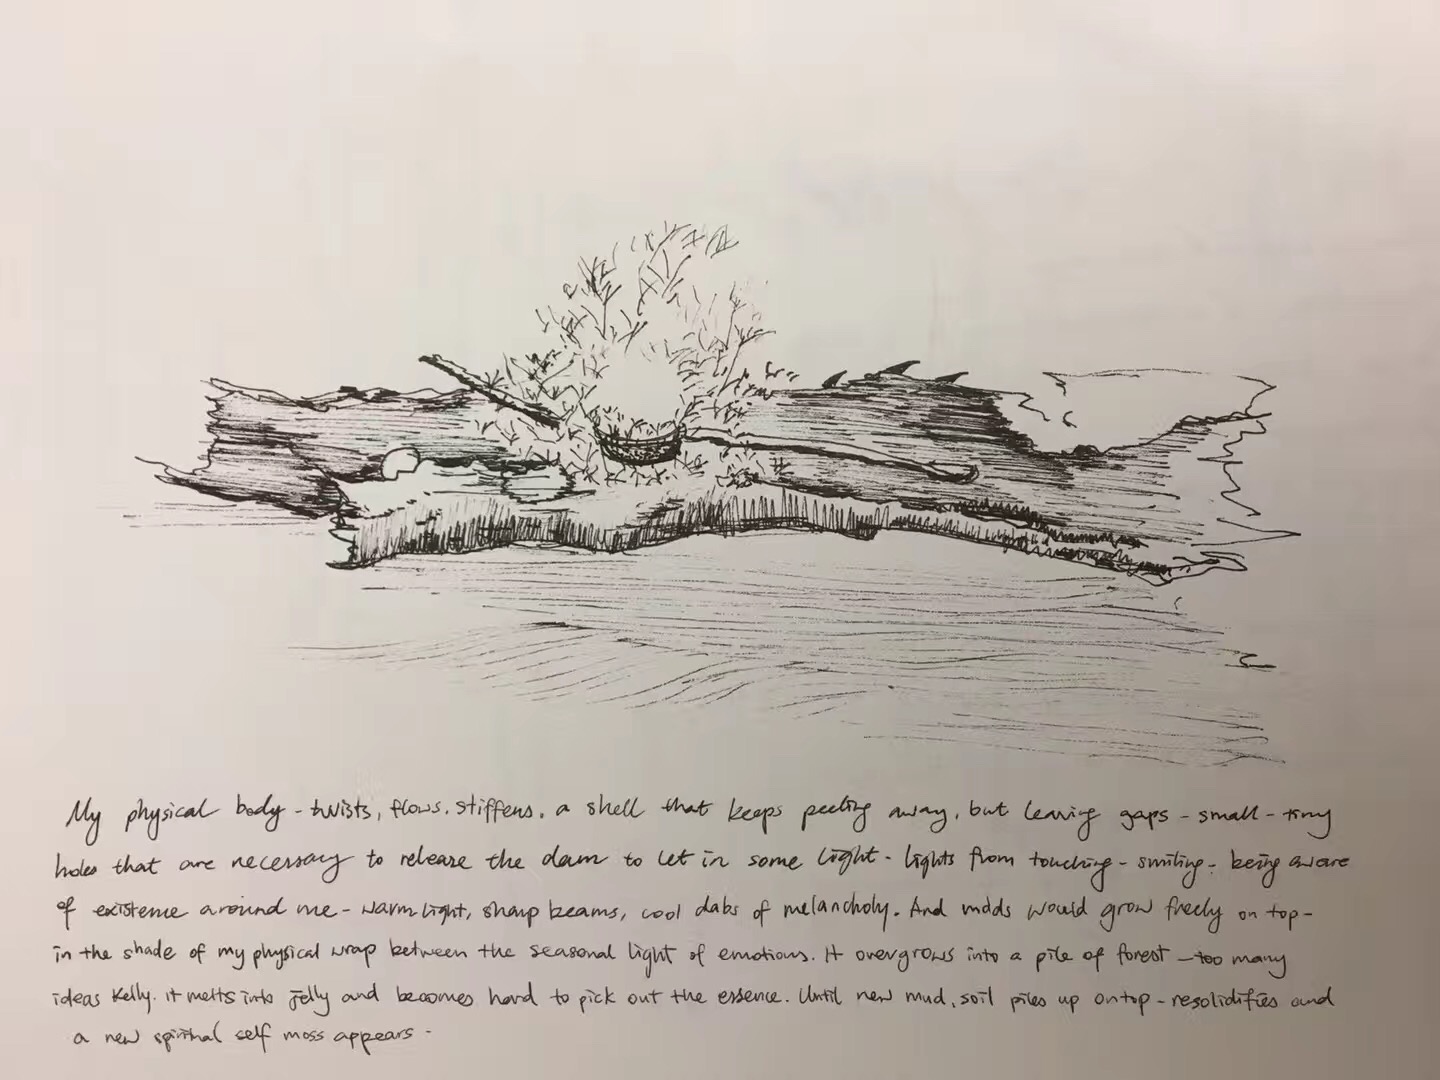 My physical body - twists, flows. stiffens. a shell that keeps peeling away, but leaving gaps - small - tiny
holes that are necessary to release the dam to let in some light - lights from touching - smiling - being aware
of existence around me - warm light, sharp beams, cool dabs of melancholy. And would grow freely on top -
in the shade of my physical wrap between the seasonal light of emotions. It overgrows into a pile of forest - too many
ideas Kelly. it melts into jelly and becomes hard to pick out the essence. Until new mud, soil piles up on top - resolidifies and
a new spiritual self moss appears -